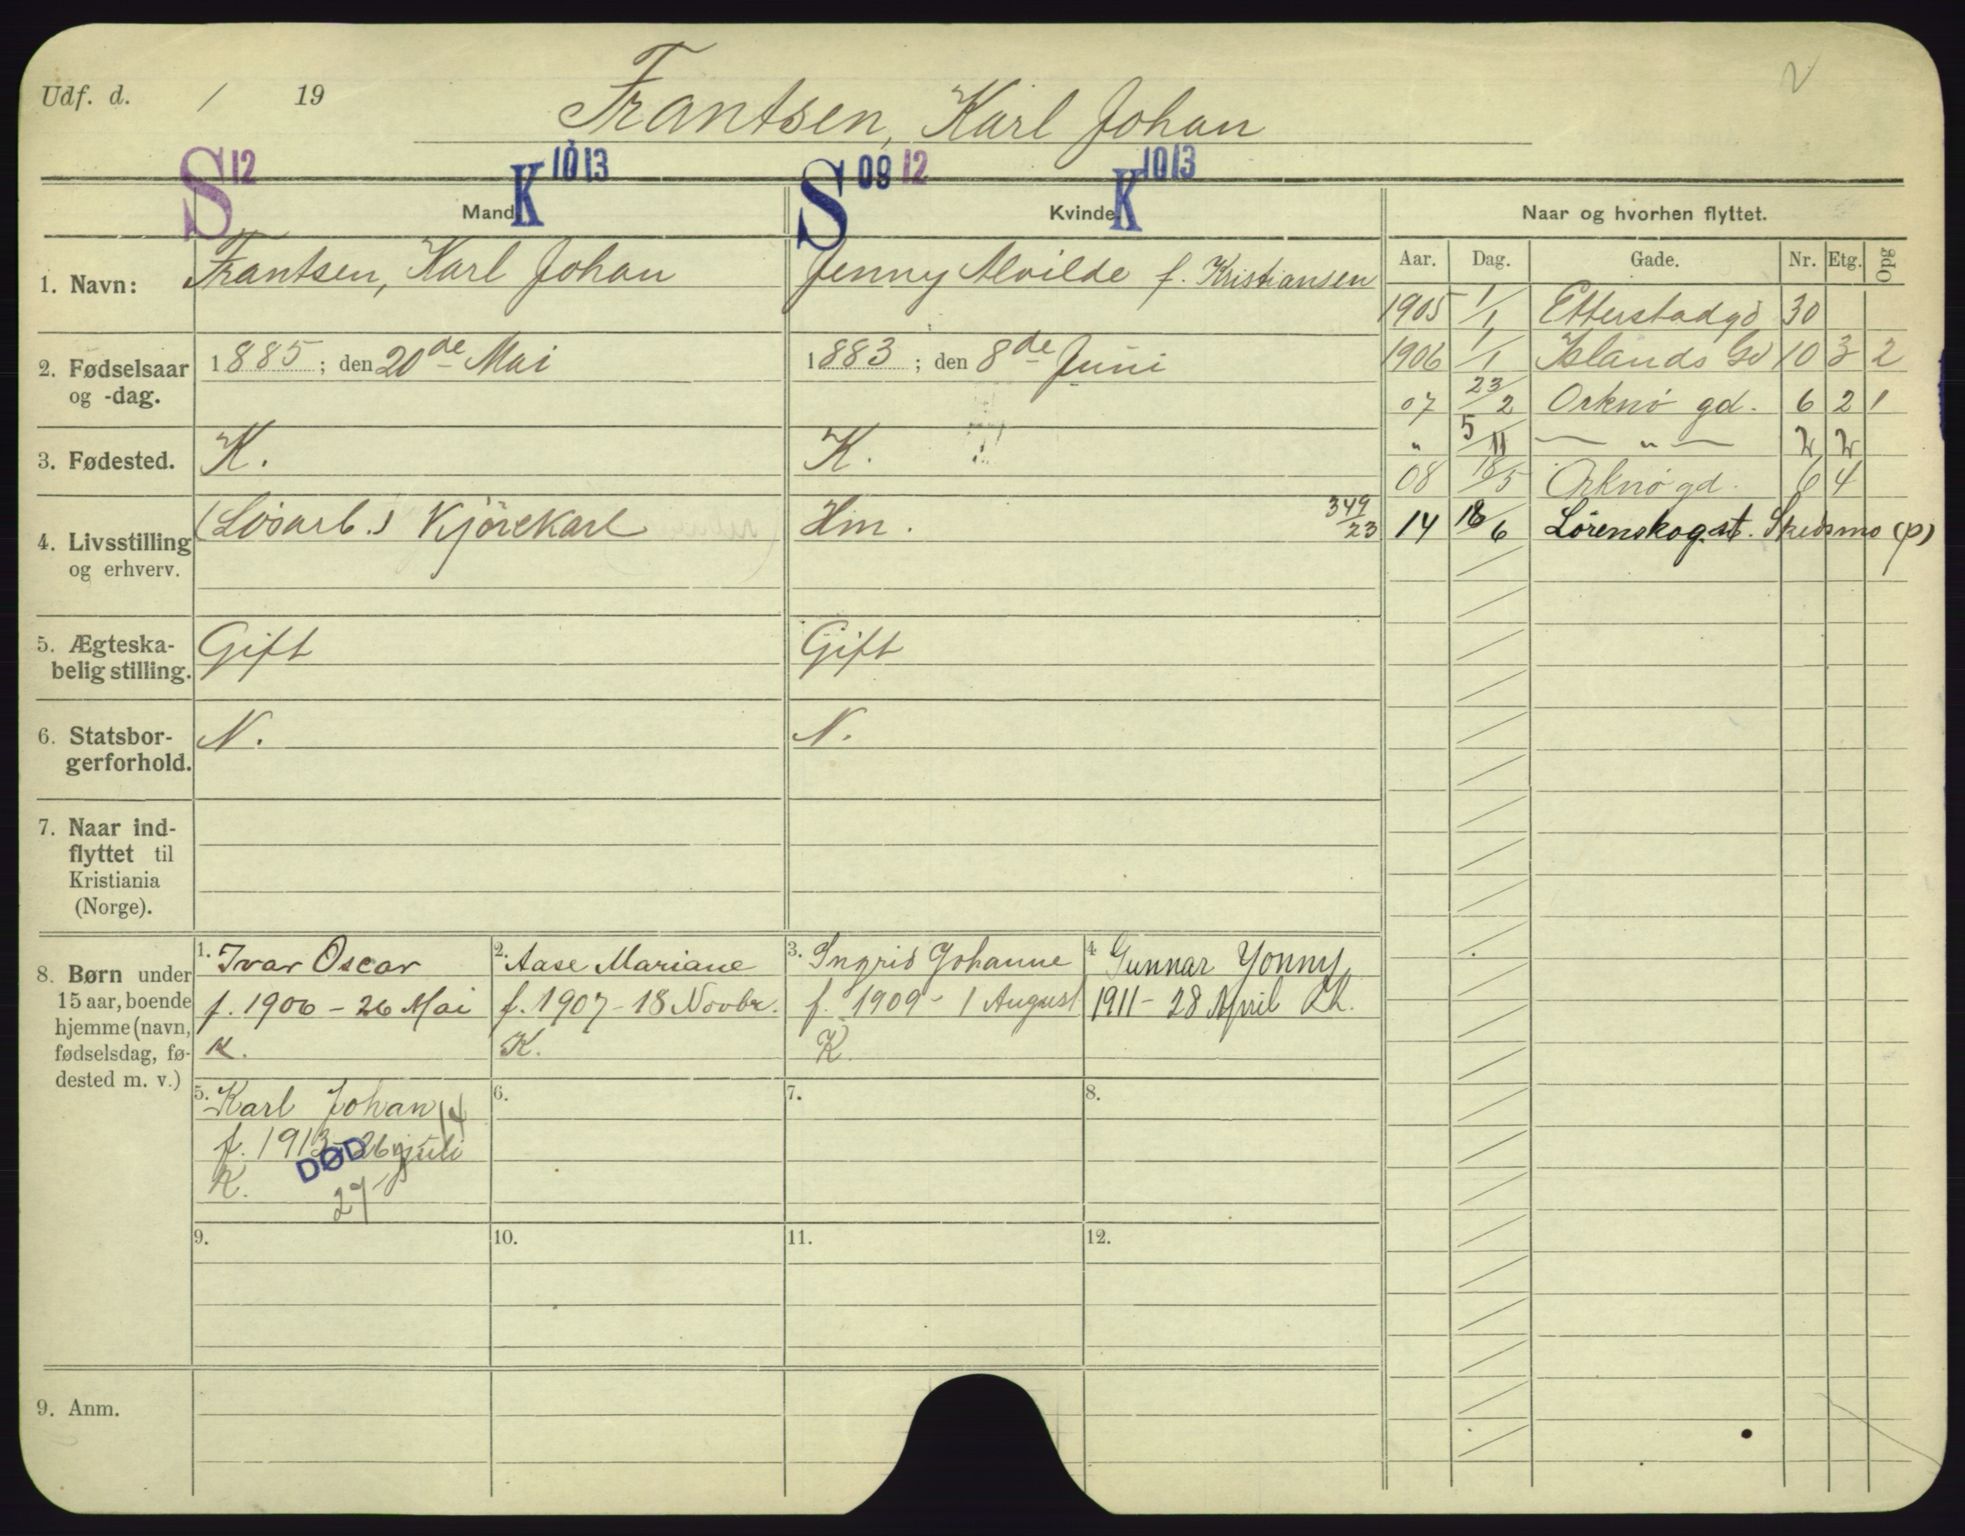 Udf. d. / 19
Frantsen, Karl Johan
S 12
K 10 13
S 08 12
K 10 13
Mand
Kvinde
Naar og hvorhen flyttet.
Aar. Dag. Gade. Nr. Etg. Opg
1. Navn: Frantsen, Karl Johan
Jenny Alvilde f. Kristiansen
2. Fødselsaar og -dag.
1885; den 20de Mai
1883; den 8de Juni
3. Fødested. K. K.
4. Livsstilling og erhverv.
(Løsarb.) Kjørekarl
Hm. 349/23
5. Ægteska-
belig stilling.
Gift Gift
6. Statsbor-
gerforhold.
N. N.
7. Naar ind-
flyttet til
Kristiania
(Norge).
1905 1/1 Etterstadgd 30
1906 1/1 Islands Gd 10 3 2
07 23/2 Orknø gd. 6 2 1
" 5/11 — " — 2 2
08 18/5 Orknø gd. 6 4
14 18/6 Lørenskog st. Skedsmo (p)
8. Børn under
15 aar, boende
hjemme (navn,
fødselsdag, fø-
dested m. v.)
1. Ivar Oscar
f. 1906 - 26 Mai
K.
2. Aase Mariane
f. 1907 - 18 Novbr.
K.
3. Ingrid Johanne
f. 1909 - 1 August
K.
4 Gunnar Yonny
1911 - 28 April Kh.
5. Karl Johan
f. 1913 - 26 juli
K.
DØD
27
14
6.
7.
8.
9.
10.
11.
12.
9. Anm.